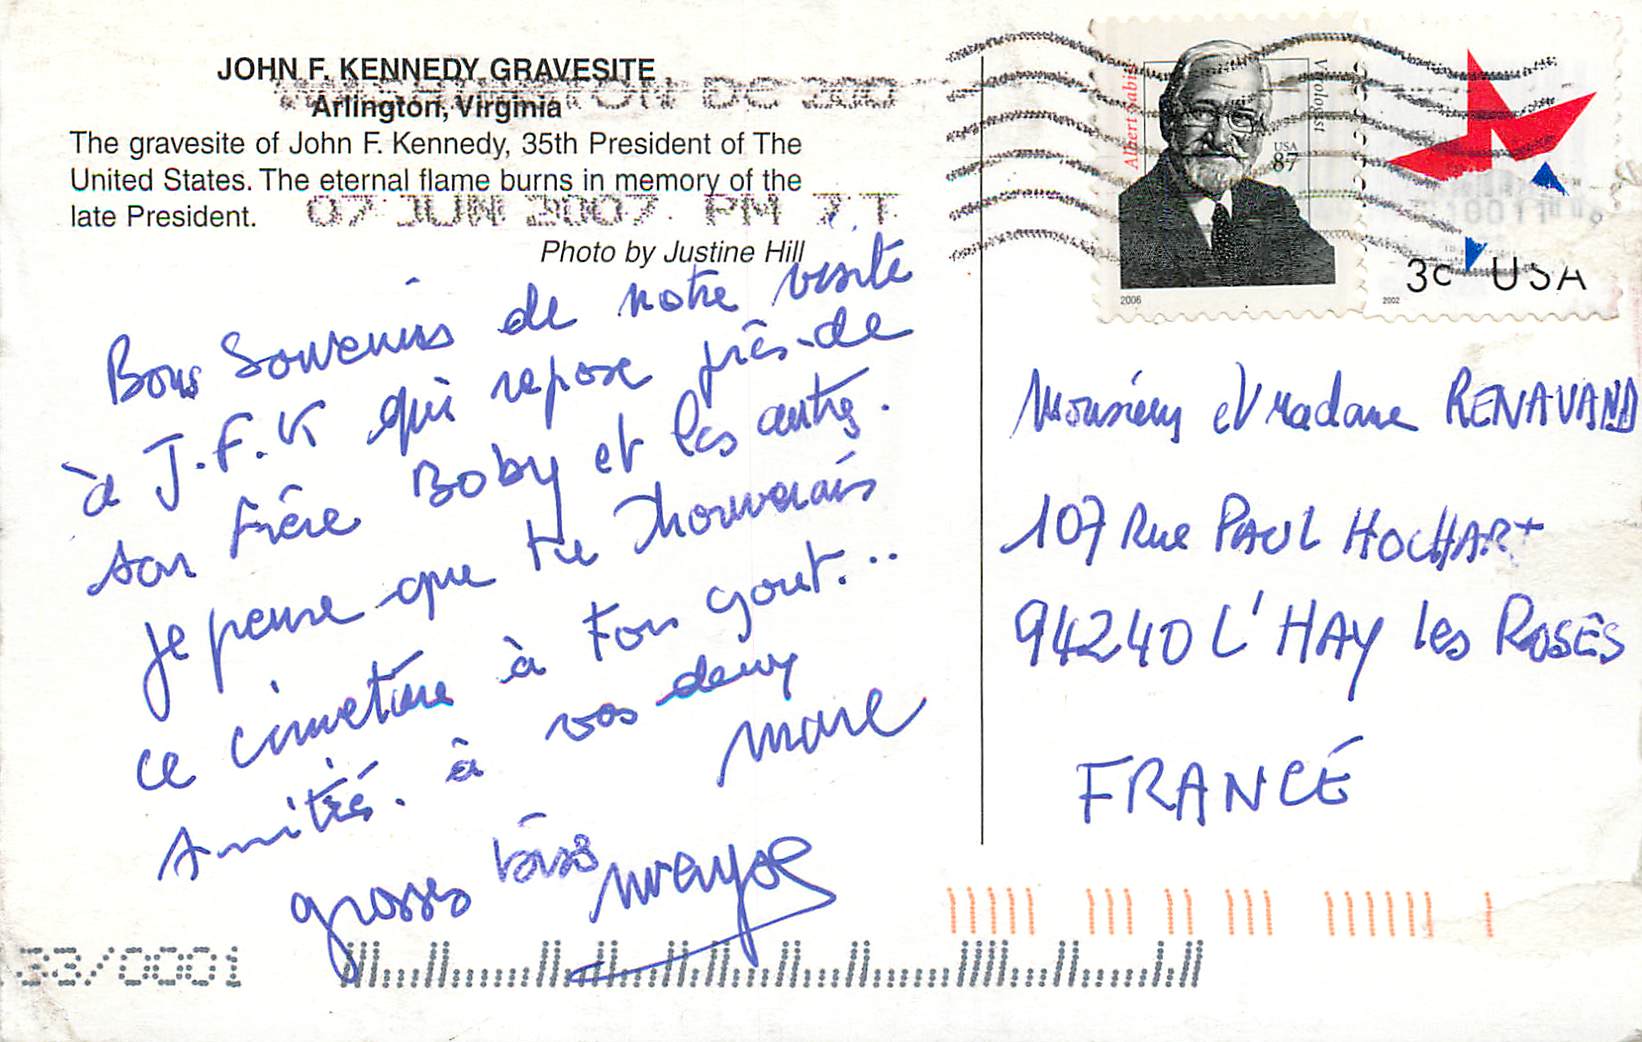 JOHN F. KENNEDY GRAVESITE
Arlington, Virginia
The gravesite of John F. Kennedy, 35th President of The
United States. The eternal flame burns in memory of the
late President.
Photo by Justine Hill
WASHINGTON DC 200
07 JUN 2007 PM 7 T
Bons Souvenirs de notre visite
à J.F.K qui repose près de
son frère Boby et les autres.
Je pense que tu trouverais
ce cimetière à ton gout...
Amitiés. à vos deux
marc
grosses bises
Albert Sabin
Virologist
USA
87
2006
3c USA
2002
Monsieur et Madame RENAVAND
107 Rue PAUL HOCHART
94240 L'HAY les ROSES
FRANCE